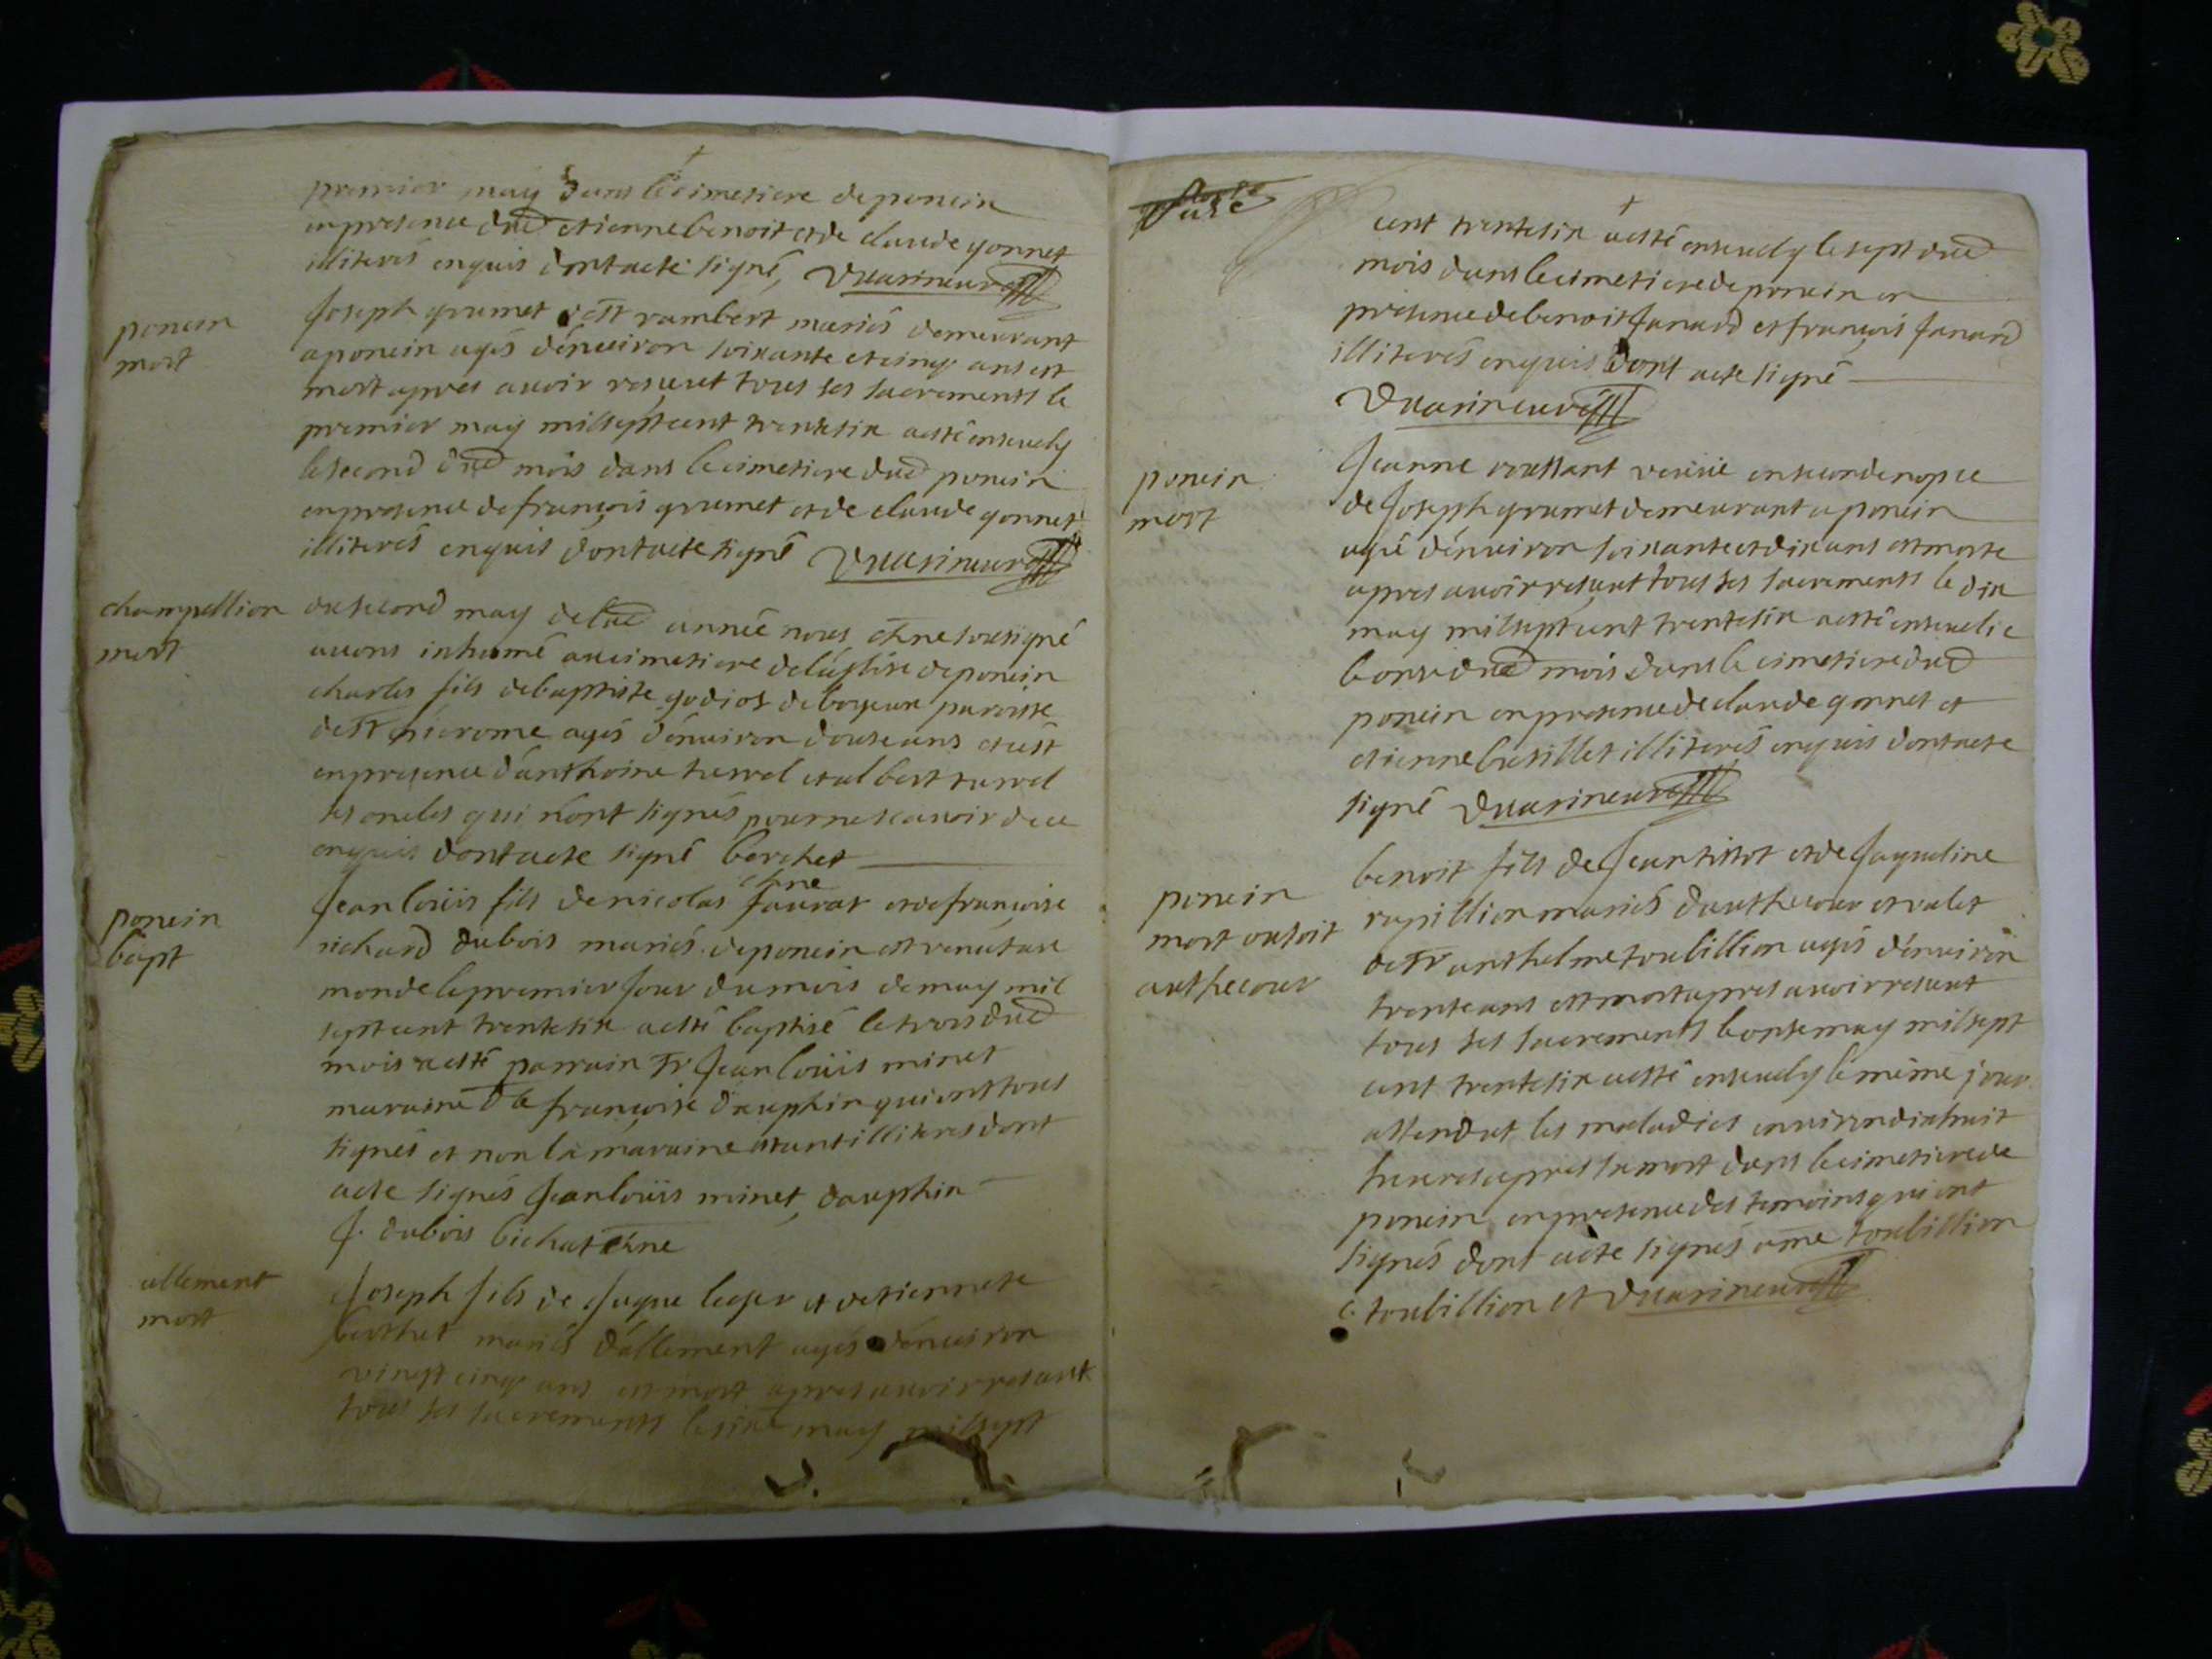 premier may dans le cimetiere de poncin
en presence dud etienne benoit et de claude gonnet
illiterés enquis dont acte signé, Duarineur
poncin
mort
Joseph grumet de st rambert mariés demeurant
a poncin agés d'enuiron soixante et cinq ans est
mort apres auoir reseut tous ses sacrements le
premier may mil sept cent trente six a esté enseuely
le second dud mois dans le cimetiere dud poncin
en presence de françois grumet et de claude gonnet
illiterés enquis dont acte signé Duarineur
champellion
mort
du second may delad année nous chne sousigné
auons inhumé au cimetiere de l'église de poncin
charles fils de baptiste godiot de boyeux paroisse
de st hierome agés d'enuiron douse ans et c'est
en presence d'anthoine turrel et albert turrel
ses oncles qui n'ont signés pour ne scauoir de ce
enquis dont acte signé berchet
chne
poncin
bapt
Jean loüis fils de nicolas faurat et de françoise
richard dubois mariés de poncin est venut au
monde le premier Jour du mois de may mil
sept cent trente six a esté baptisé le trois dud
mois a esté parrain sr Jean loüis minet
maraine dlle françoise dauphin qui ont tous
signés et non la maraine etant illiteres dont
acte signés Jean loüis minet, dauphin
J. dubois bichat chne
allement
mort
Joseph fils de Juque leger et detiennete
berthet mariés d'allement agés d'enuiron
vingt cinq ans est mort apres auoir reseut
tous ses sacrements le sixe may mil sept
cent trente six a esté enseuely le sept dud
mois dans le cimetiere de poncin en
presence de benoit Janard et françois Janard
illiterés enquis dont acte signé
Duarineur
poncin
mort
Jeanne roussant veüue en seconde nopce
de Joseph grumet demeurant a poncin
agé d'enuiron soixante et dix ans est morte
apres auoir reseut tous ses sacrements le dix
may mil sept cent trente six a esté enseuelie
le onse dud mois dans le cimetiere dud
poncin en presence de claude gonnet et
etienne brusillet illiterés enquis dont acte
signé Duarineur
poncin
mort ou soit
authecour
benoit fils de Jean tissot et de Jaqueline
rapillion mariés d'authecour et valet
de sr anthelme toubillion agés d'enuiron
trente ans est mort apres auoir reseut
tous ses sacrements le onse may mil sept
cent trente six a esté enseuely le même jour
attendut les maladies enuiron dix huit
heures apres sa mort dans le cimetiere de
poncin en presence des temoins qui ont
signés dont acte signés ame toubillion
c. toubillion et Duarineur